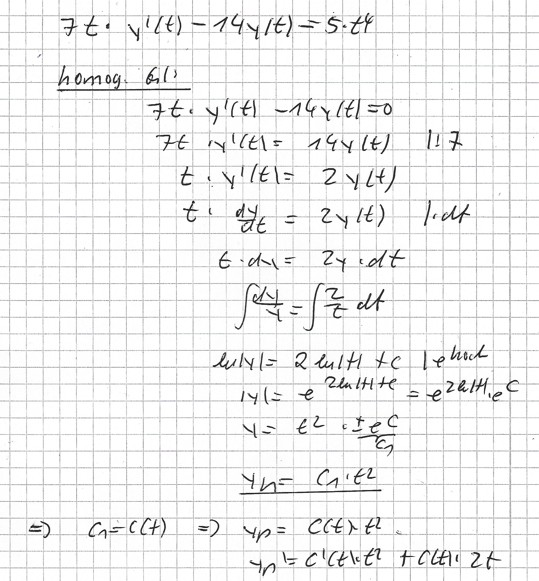 7t · y'(t) − 14y(t) = 5·t⁴
homog. Gl:
7t · y'(t) − 14y(t) = 0
7t · y'(t) = 14y(t) |:7
t · y'(t) = 2y(t)
t · dy/dt = 2y(t) |·dt
t·dy = 2y·dt
∫dy/y = ∫2/t dt
ln|y| = 2 ln|t| + c |e hoch
|y| = e^(2ln|t|+c) = e^(2ln|t|)·e^c
y = t² · ±e^c
C₁
yh = C₁·t²
=> C₁=C(t) => yp = C(t)·t²
yp' = C'(t)·t² + C(t)·2t